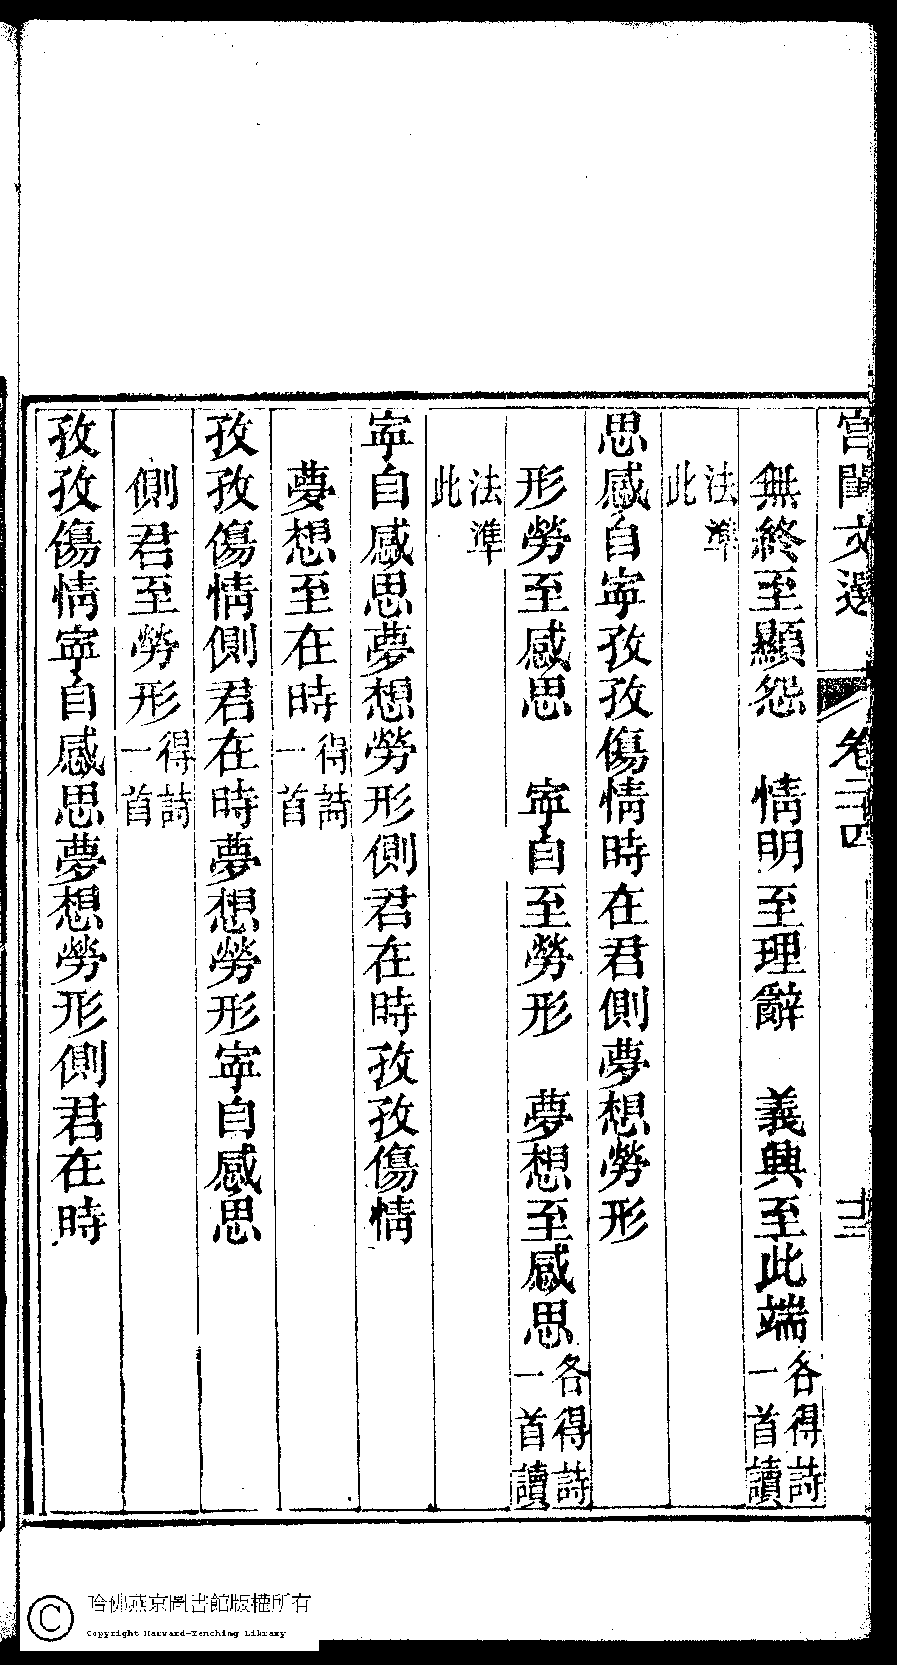 宮閨文選 卷二十四 十三
無終至顯怨 情明至理辭 義興至此端各得詩一首讀
法準此
思感自寧孜孜傷情時在君側夢想勞形
形勞至感思 寧自至勞形 夢想至感思各得詩一首讀
法準此
寧自感思夢想勞形側君在時孜孜傷情
夢想至在時得詩一首
孜孜傷情側君在時夢想勞形寧自感思
側君至勞形得詩一首
孜孜傷情寧自感思夢想勞形側君在時
哈佛燕京圖書館版權所有
Copyright Harvard-Yenching Library